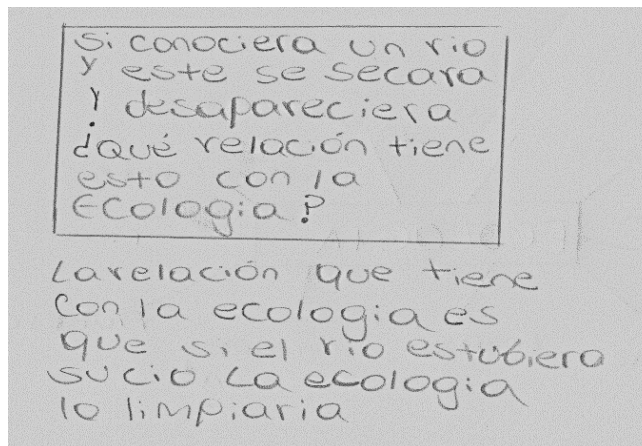 Si conociera un rio
y este se secara
y desapareciera
¿Qué relación tiene
esto con la
Ecologia?
La relación que tiene
con la ecologia es
que si el rio estubiera
sucio La ecologia
lo limpiaria